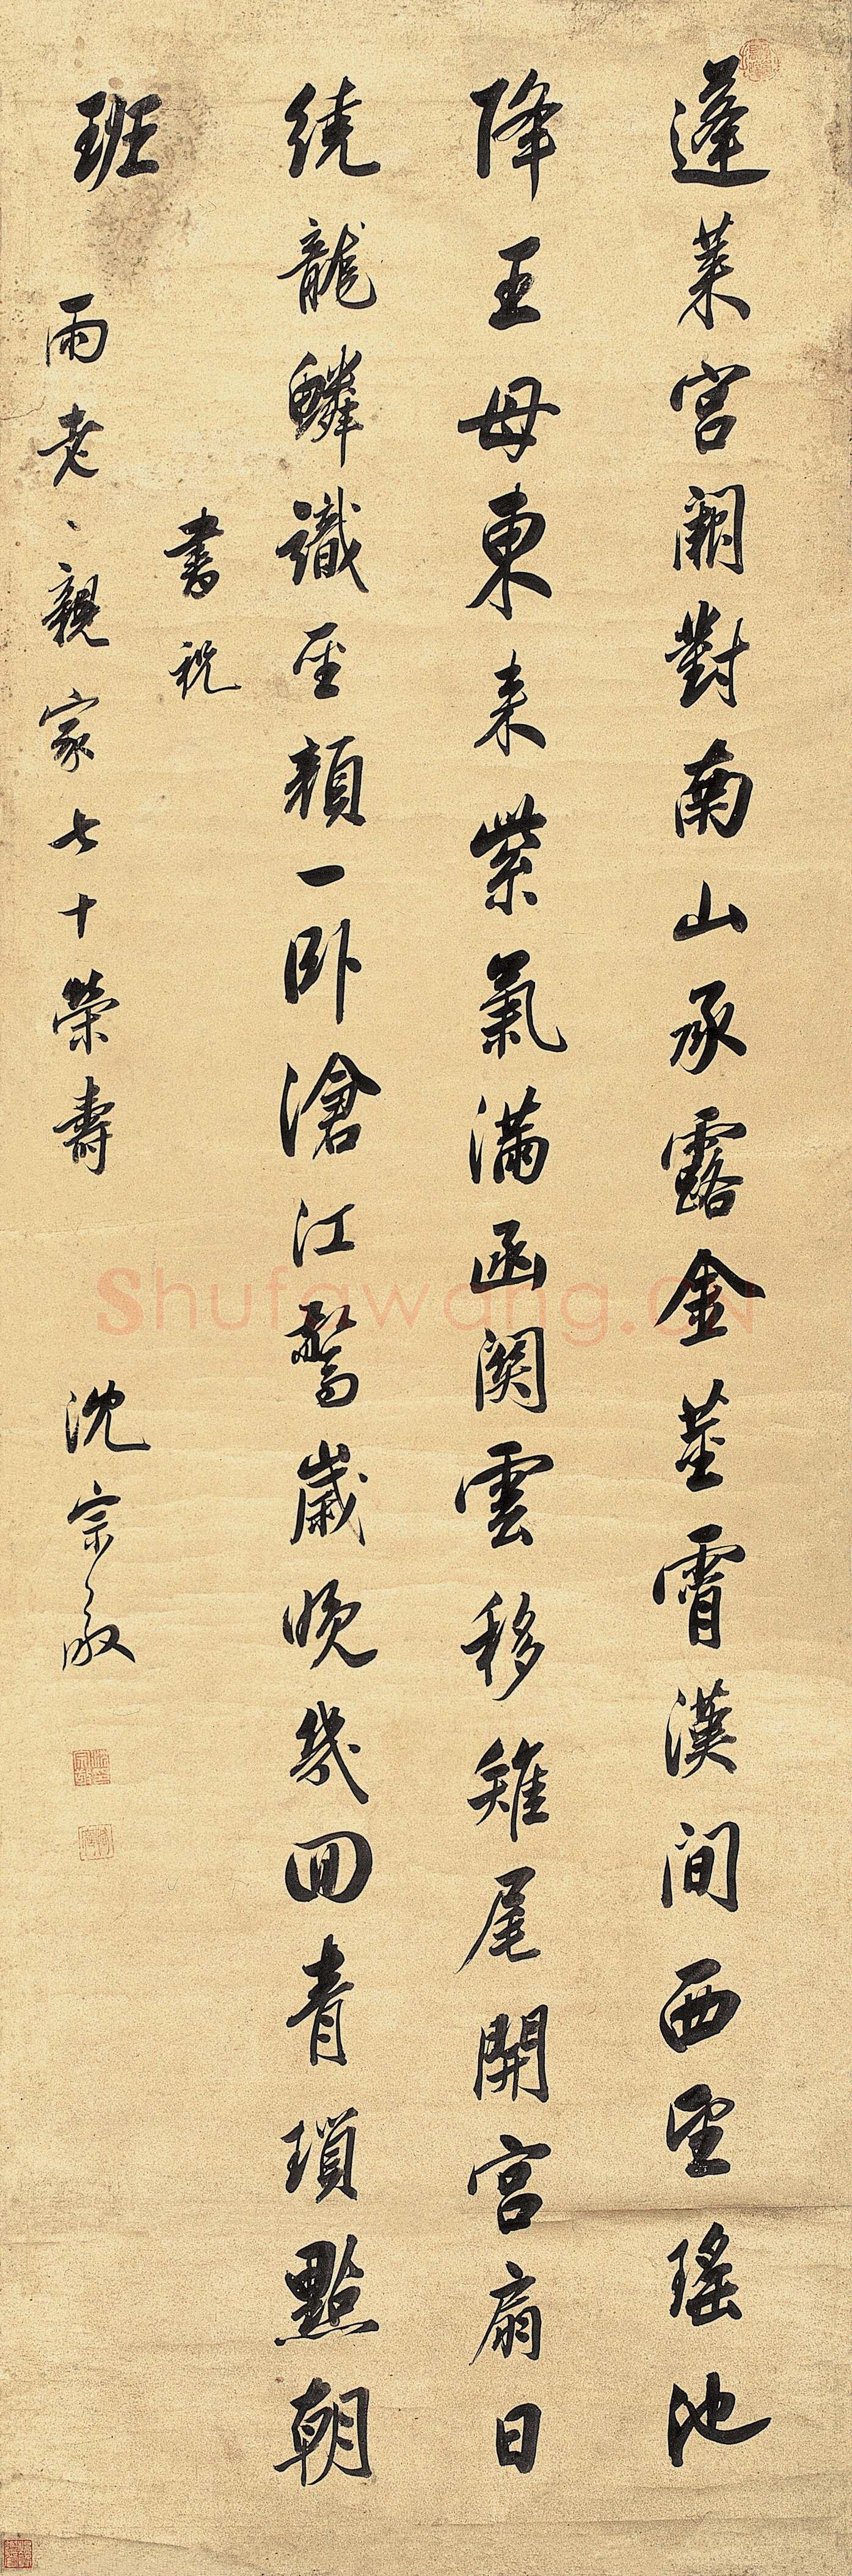 蓬萊宮闕對南山承露金莖霄漢間西望瑤池
降王母東来紫氣滿函関雲移雉尾開宮扇日
繞龍鱗識聖顔一卧滄江驚歲晚幾回青瑣點朝
班
書祝
雨老、親家七十榮壽
沈宗敬
Shufawang.CN